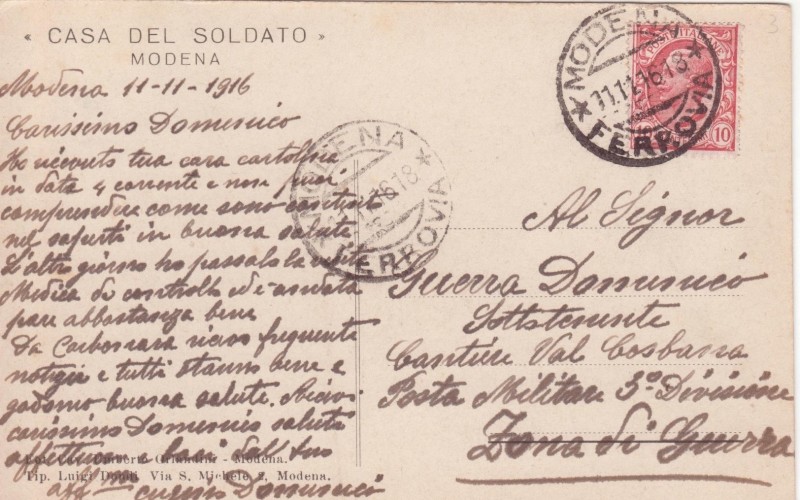 « CASA DEL SOLDATO »
MODENA
Modena 11-11-1916
Carissimo Domenico
Ho ricevuto tua cara cartolina
in data 4 corrente e non puoi
comprendere come sono contento
nel saperti in buona salute
L'altro giorno ho passato la visita
Medica di controllo ed è andata
pure abbastanza bene
Da Carbonara ricevo frequente
notizie e tutti stanno bene e
godono buona salute. Ricevi
carissimo Domenico saluti
affettuosi baci dal tuo
aff.mo cugino Domenico
Umberto Orlandini - Modena.
Tip. Luigi Via S. Michele 2, Modena.
MODENA
FERROVIA
MODENA
11.11.16.18
FERROVIA
POSTE ITALIANE
10
3
Al Signor
Guerra Domenico
Sottotenente
Cantiere Val Cosbana
Posta Militare 5º Divisione
Zona di Guerra